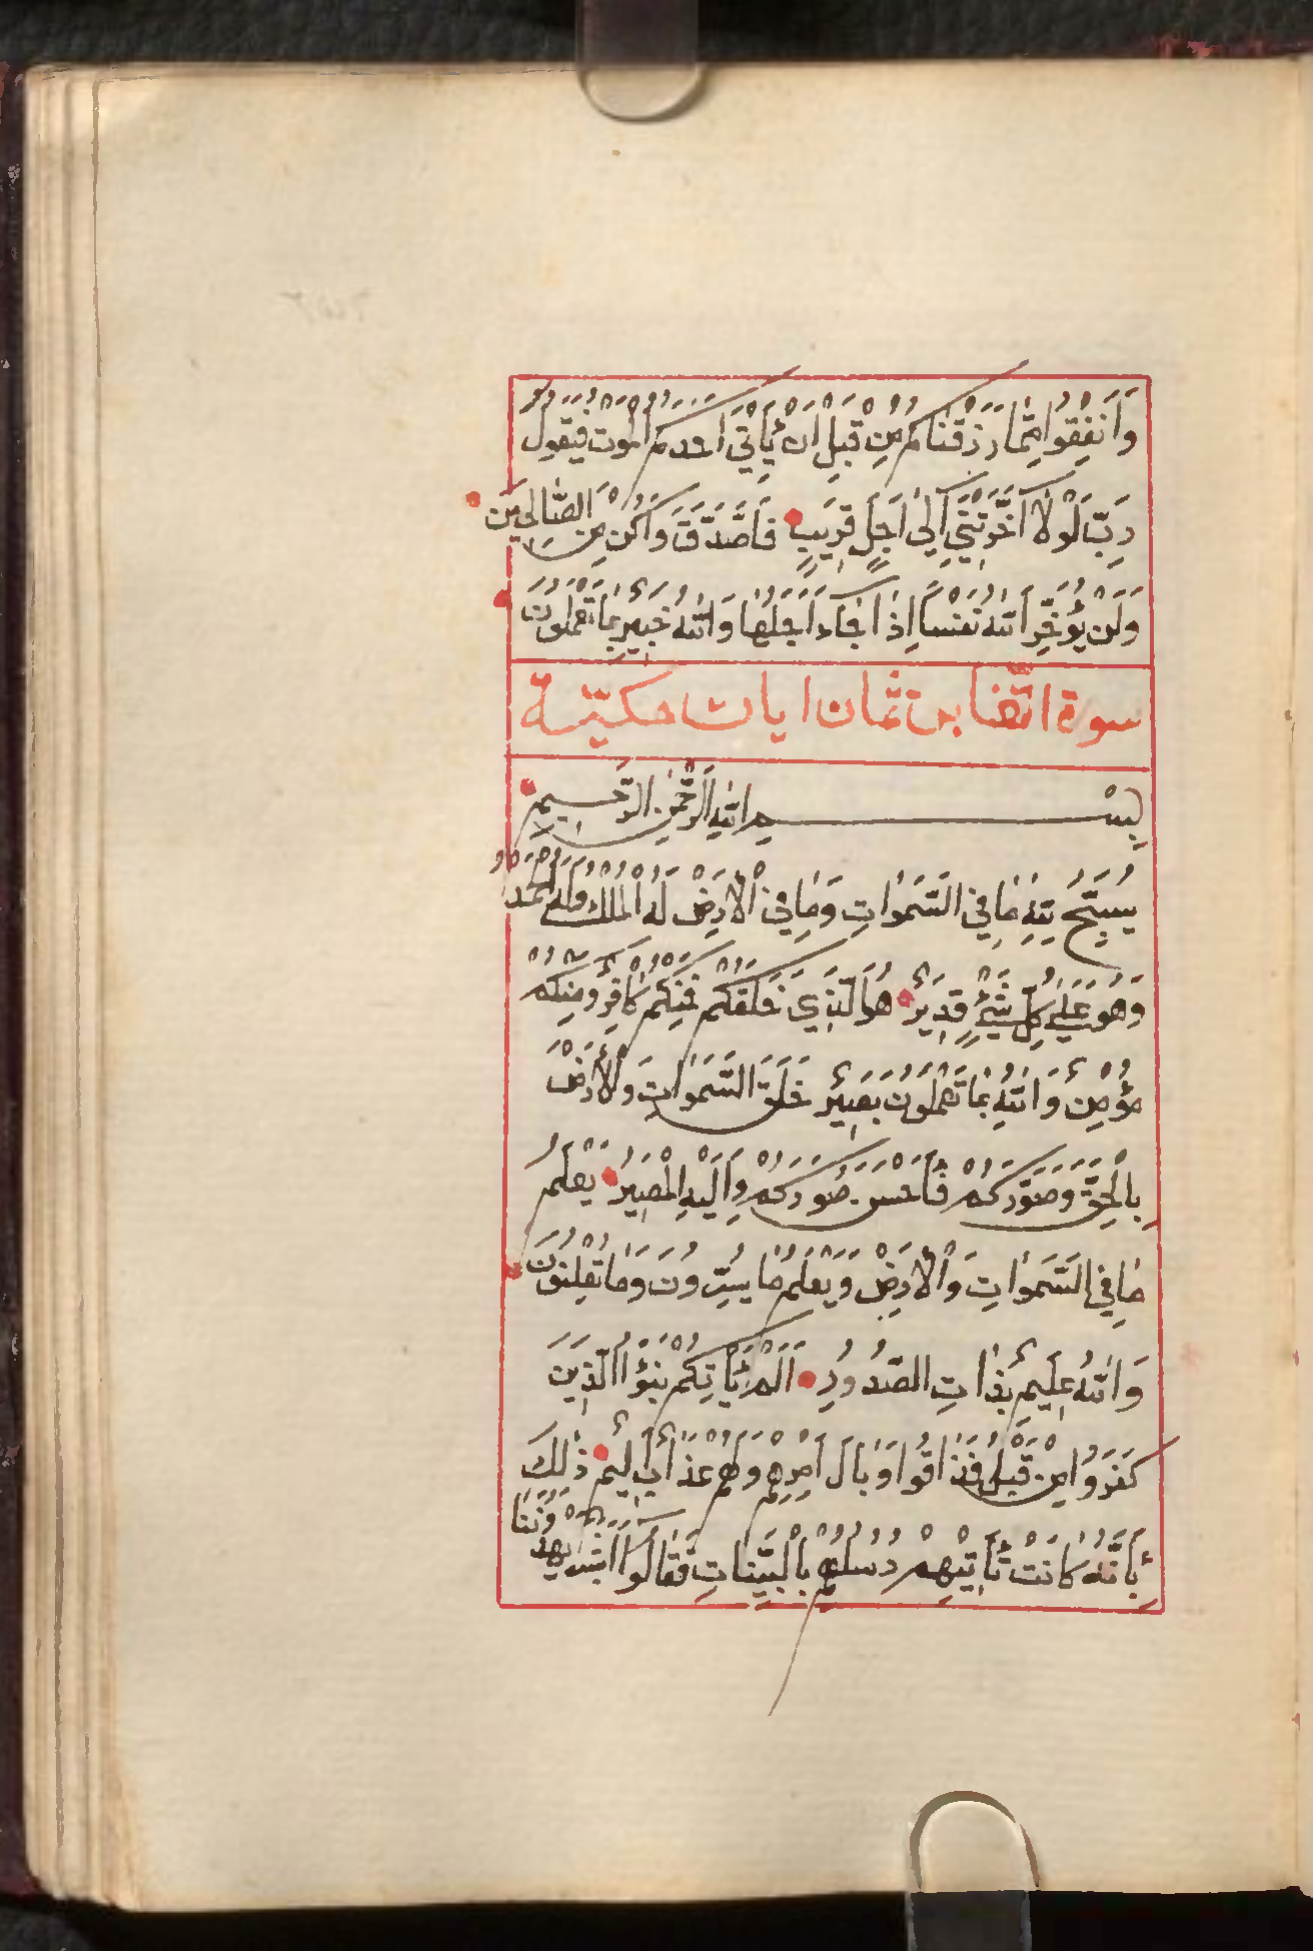 وَاَنْفِقُوا مِمَّا رَزَقْنَاكُمْ مِنْ قَبْلِ اَنْ يَأْتِيَ اَحَدَكُمُ الْمَوْتُ فَيَقُولَ
رَبِّ لَوْلَا اَخَّرْتَنِي اِلٰى اَجَلٍ قَرِيبٍ فَاَصَّدَّقَ وَاَكُنْ مِنَ الصَّالِحِينَ
وَلَنْ يُؤَخِّرَ اللّٰهُ نَفْسًا اِذَا جَاءَ اَجَلُهَا وَاللّٰهُ خَبِيرٌ بِمَا تَعْمَلُونَ
سورة التغابن ثمان ايات مكيتة
بِسْمِ اللّٰهِ الرَّحْمٰنِ الرَّحِيمِ
يُسَبِّحُ لِلّٰهِ مَا فِي السَّمَوَاتِ وَمَا فِي الْاَرْضِ لَهُ الْمُلْكُ وَلَهُ الْحَمْدُ
وَهُوَ عَلٰي كُلِّ شَيْءٍ قَدِيرٌ هُوَ الَّذِي خَلَقَكُمْ فَمِنْكُمْ كَافِرٌ وَمِنْكُمْ
مُؤْمِنٌ وَاللّٰهُ بِمَا تَعْمَلُونَ بَصِيرٌ خَلَقَ السَّمَوَاتِ وَلْاَرْضَ
بِالْحَقِّ وَصَوَّرَكُمْ فَاَحْسَنَ صُوَرَكُمْ وَاِلَيْهِ الْمَصِيرُ يَعْلَمُ
مَا فِي السَّمَوَاتِ وَالْاَرْضِ وَيَعْلَمُ مَا يُسِرُّونَ وَمَا تُعْلِنُونَ
وَاللّٰهُ عَلِيمٌ بِذَاتِ الصُّدُورِ اَلَمْ يَأْتِكُمْ نَبَؤُا الَّذِينَ
كَفَرُوا مِنْ قَبْلُ فَذَاقُوا وَبَالَ اَمْرِهِمْ وَلَهُمْ عَذَابٌ اَلِيمٌ ذٰلِكَ
بِاَنَّهُ كَانَتْ تَأْتِيهِمْ رُسُلُهُمْ بِالْبَيِّنَاتِ فَقَالُوا اَبَشَرٌ يَهْدُونَنَا